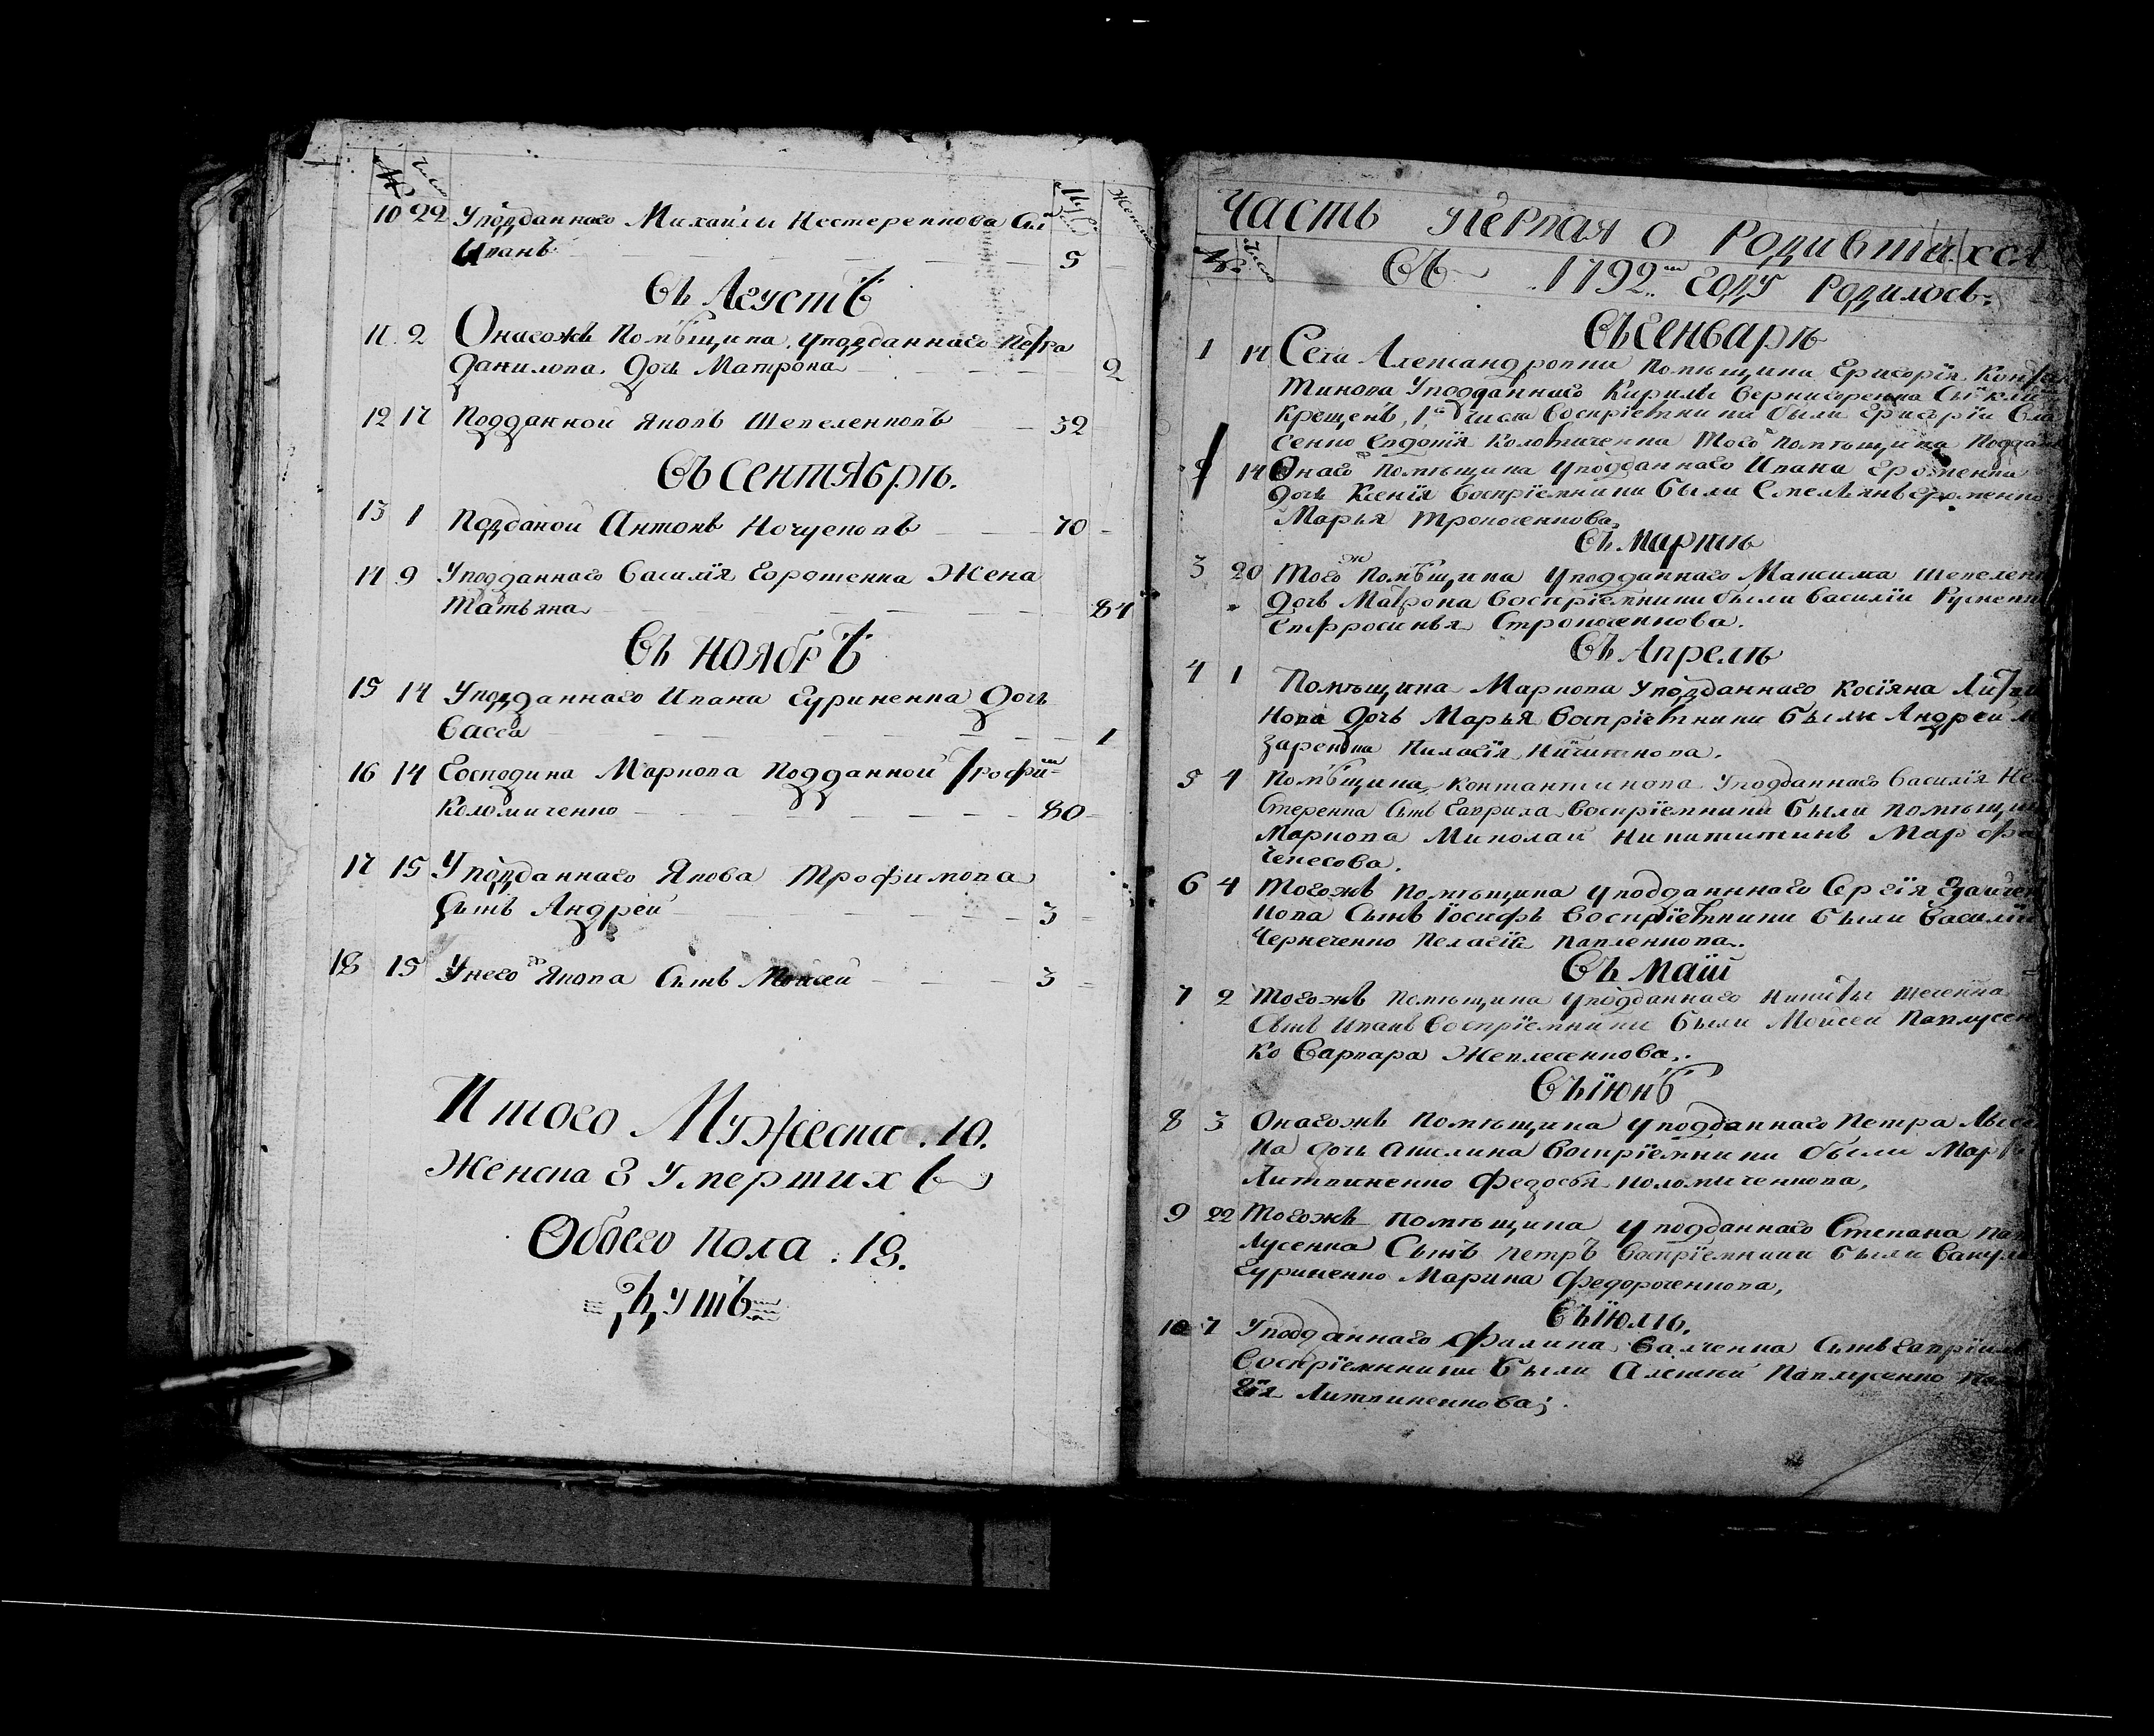 № Число Муж Женск
10 22 Уподданнаго Михайлы Нестеренкова Сы́
Иванъ 5
Въ Августѣ
11 2 Онагожъ Помѣщика уподданнаго Петра
Данилова Дочь Матрона 2
12 17 Подданной Яковъ Шепеленковъ 32
Въ Сентябрѣ.
13 1 Подданой Антонъ Ночуеновъ 70
14 9 Уподданнаго Василїя Ерошенка Жена
Татьяна 84
Въ Ноябрѣ
15 14 Уподданнаго Ивана Гуриненка Дочь
Васса 1
16 14 Господина Маркова Подданной Трофи
Коломиченко 80
17 15 Уподданнаго Якова Трофимова
Сынъ Андрей 3
18 15 Унего Якова Сынъ Моѵсей 3
Итого Мужеска .10.
Женска 8 Умершихъ
Обоего Пола .18.
Душъ
Часть Первая о Родившихся
№ Число Въ .1792. году Родилось:
Въ Генварѣ
1 14 Села Александровки Помѣщика Григорїя Конс
тинова Уподданнаго Кирилы Верни Сы
Крещенъ, 1 Числа Воспрїемники были Григорїй
сенко Евдокїя Коломиченка Того Помѣщика Подда
2 14 Онаго Помѣщика Уподданнаго Ивана Ерошенка
Дочь Ксенїя Воспрїемники были Емельянъ Ерошенко
Марья Трокоченкова
Въ Мартѣ
3 20 Того ж Помѣщика Уподданнаго Максима Шепелен
Дочь Матрона Воспрїемники были Василїй
Евфросинья Строкоченкова.
Въ Апрелѣ
4 1 Помѣщика Маркова Уподданнаго Косїяна Литви
нова Дочь Марья Воспрїемники были Андрей
заренка Пилагїя Никитнова.
5 4 Помѣщика Контантинова Уподданнаго Василїя Не
стеренка Сынъ Гаврила Воспрїемники были Помѣщи
Маркова Миколай Никитинъ Марфа
Чепесова.
6 4 Тогожъ Помѣщика Уподданннаго Сергїя Зайчен
кова Сынъ Їосифъ Воспрїемники были Василїй
Чернеченко Пелагїя Павленкова.
Въ Маїи
7 2 Тогожъ Помѣщика Уподданнаго Никиты
Сынъ Иванъ Воспрїемники были Моѵсей Павлусен
ко Варвара Жевлесенкова.
Въ Їюнѣ
8 3 Онагожъ Помѣщика Уподданнаго Петра Лысе
ка Дочь Акилина Воспрїемники были Мар
Литвиненко Федосья Коломиченкова,
9 22 Тогожъ Помѣщика Уподданнаго Степана Пав
лусенка Сынъ Петръ Воспрїемники были Вакула
Гуриненко Марина Федороченкова,
Въ Їюлѣ.
10 7 Уподданнаго Филипа Валченка Сынъ Гаврїилъ
Воспрїемники были Алексѣй Павлусенко Пела
гїя Литвиненкова;